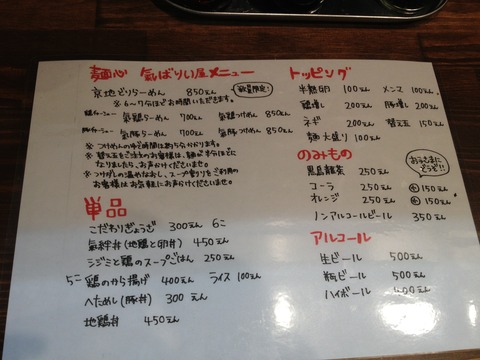 麺心 氣ばりい屋メニュー
京地どりらーめん 850えん 数量限定!
※6~7分ほどお時間いただきます。
鶏チャーシュー 氣鶏らーめん 700えん 氣鶏つけめん 850えん
豚チャーシュー 氣豚らーめん 700えん 氣豚つけめん 850えん
※つけめんのゆで時間は約5分かかります。
※替え玉をご注文のお客様は、麺が半分ほどに
なりましたら、お声かけくださいませ。
※つけだしの温めなおし、スープ割りをご利用の
お客様はお気軽にお声かけくださいませ。
単品
こだわりぎょうざ 300えん 6こ
氣絆丼(地鶏と卵丼) 450えん
シジミと鶏のスープごはん 250えん
5こ 鶏のから揚げ 400えん ライス 100えん
へためし(豚丼) 300えん
地鶏丼 450えん
トッピング
半熟卵 100えん メンマ 100えん
鶏増し 200えん 豚増し 200えん
ネギ 200えん 替え玉 150えん
麺大盛り 100えん
のみもの
おこさまにどうぞ!!
黒烏龍茶 250えん
コーラ 250えん 小 150えん
オレンジ 250えん 小 150えん
ノンアルコールビール 350えん
アルコール
生ビール 500えん
瓶ビール 500えん
ハイボール 400えん